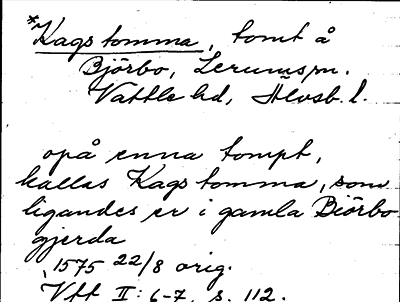 *Kagstomma, tomt å
Björbo, Lerums sn.
Vättle hd, Älvsb. l.
opå enna tompt,
kallas Kagstomma, som
ligandes er i gamla Biörbo
gjerda
1575 22/8 orig.
Vtt II: 6-7, s. 112.